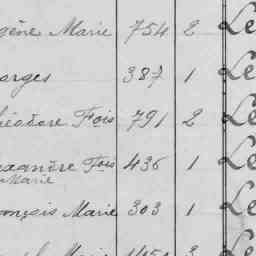 gène Marie 754 2 Le
orges 387 1 Le
héodore Fois 791 2 Le
exandre Fois 436 1 Le
Marie
ançois Marie 303 1 Le
3 Le